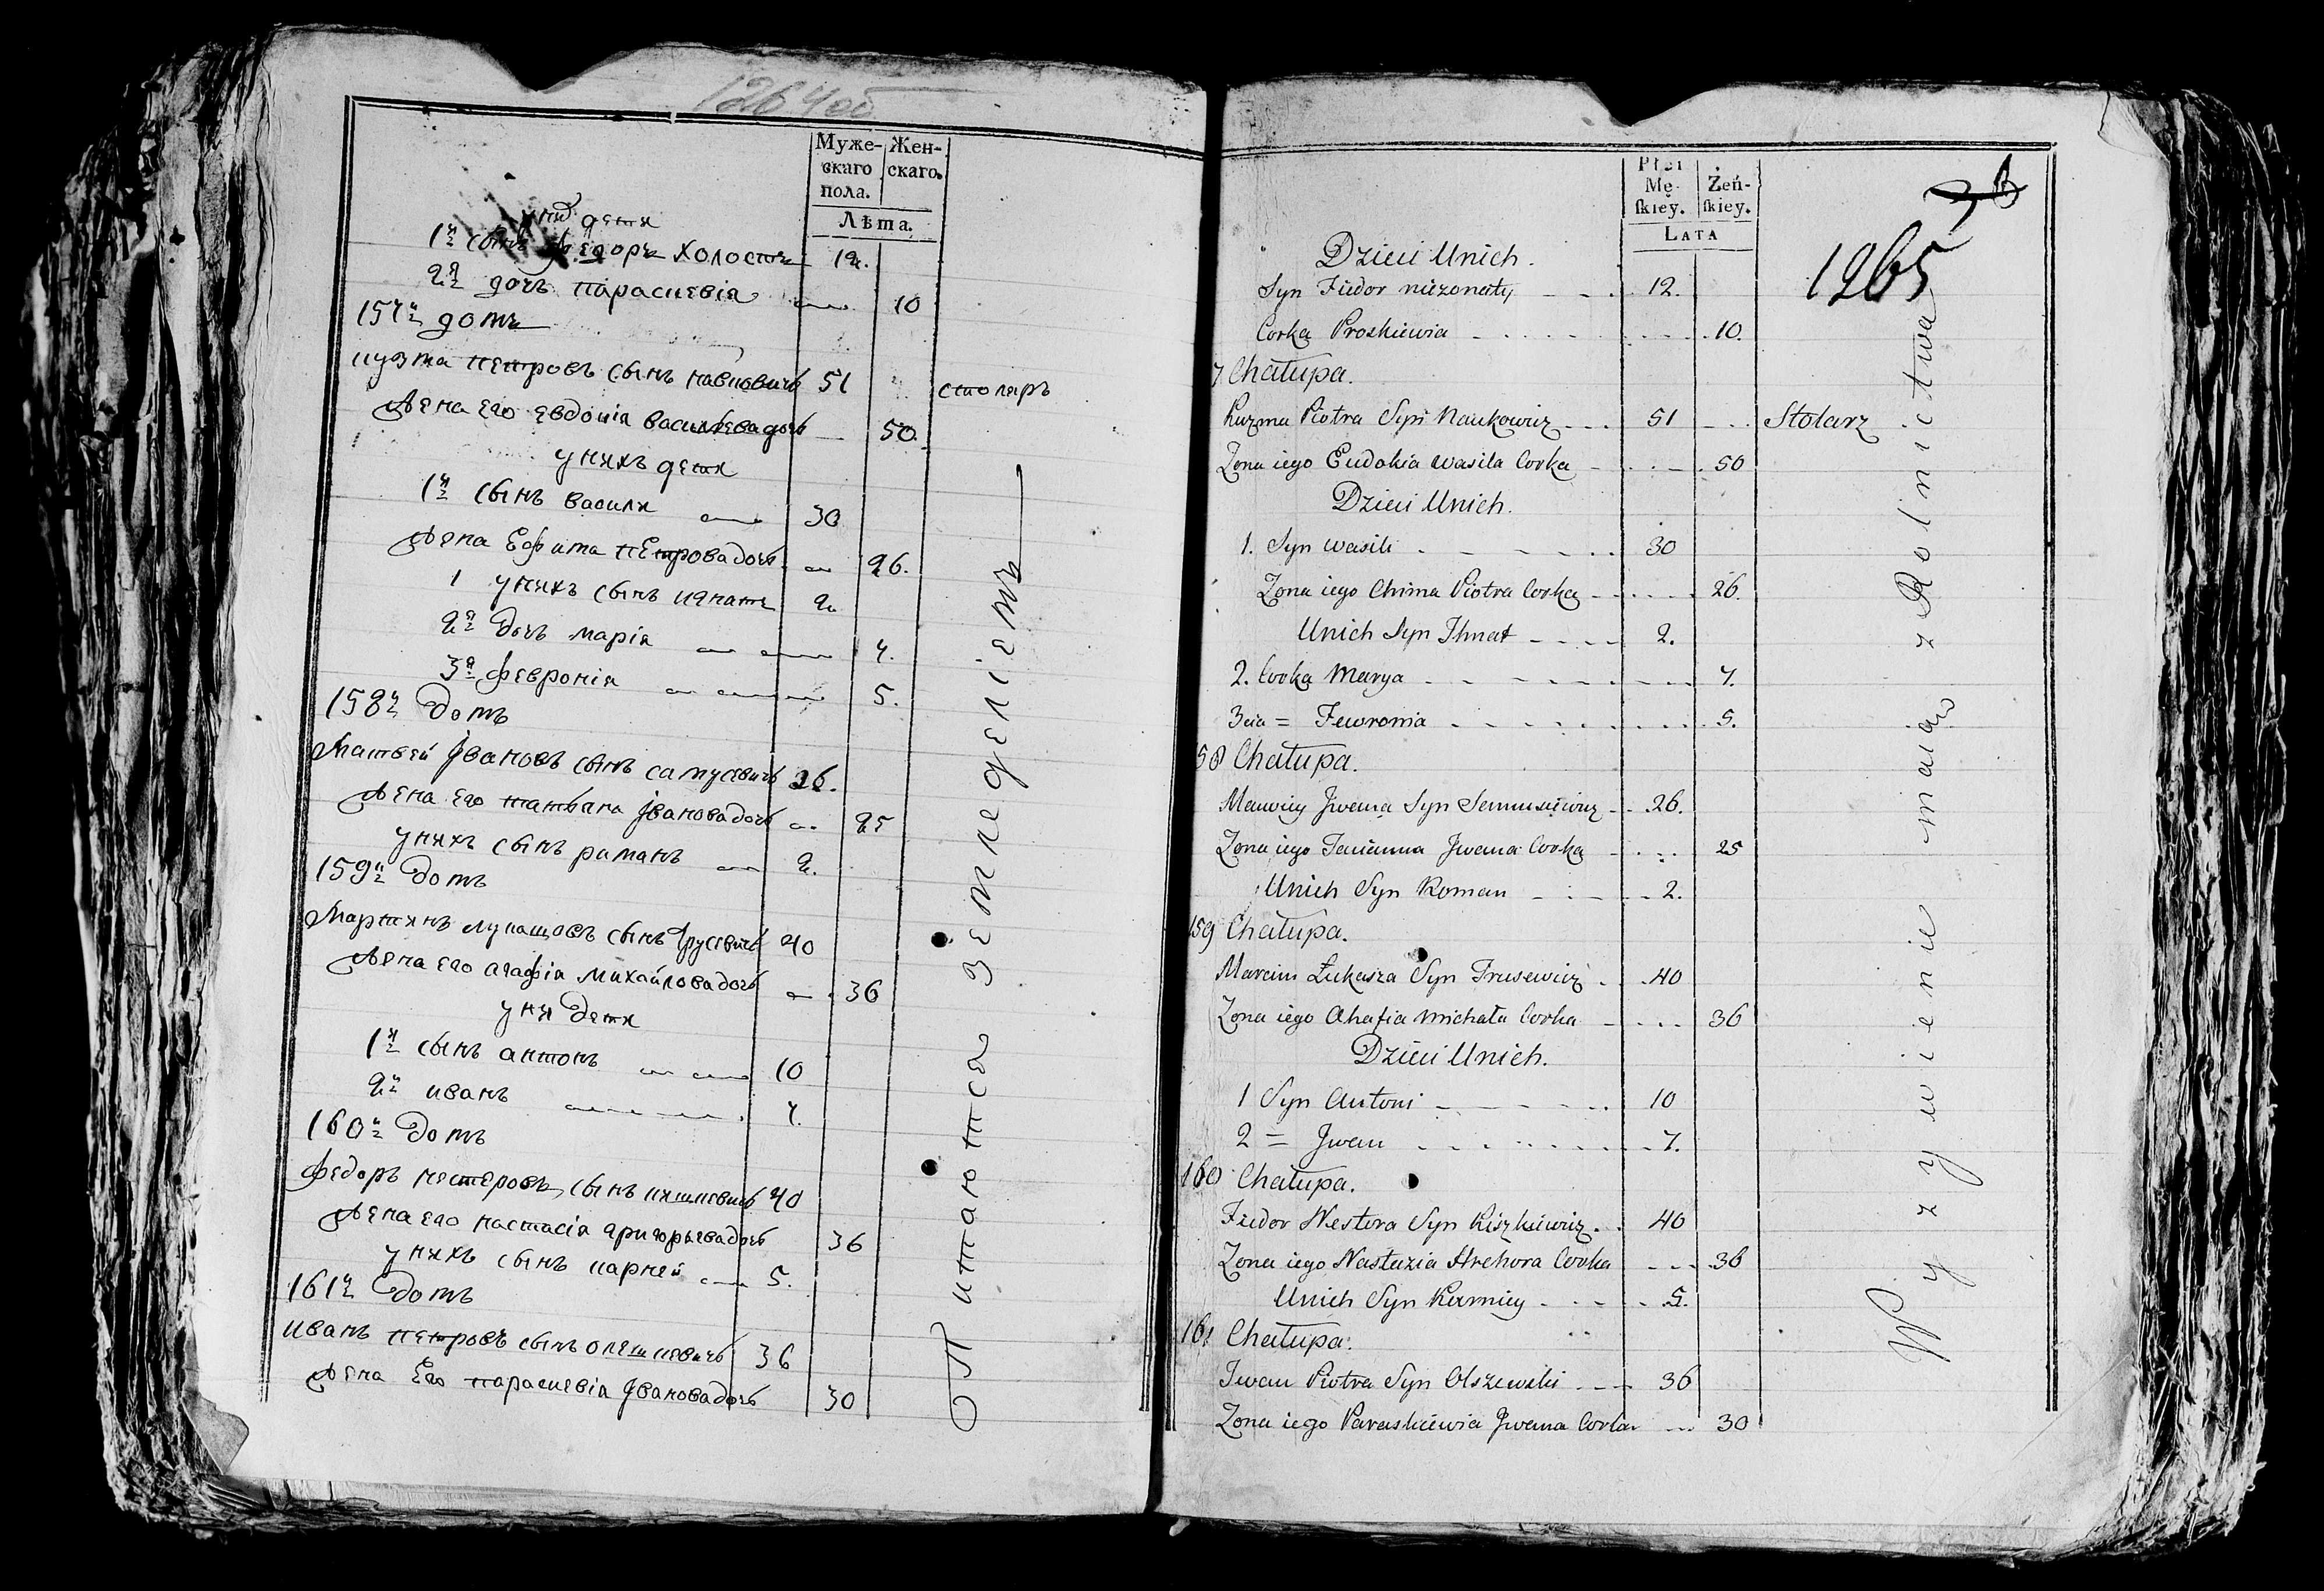 1264 об
Муже-
скаго
пола.
Жен-
скаго.
Лѣта.
у них дети
1й сынъ Федоръ холостъ 12.
2я дочь параскевія 10
157й домъ
кузма петровъ сынъ навковичъ 51 столяръ
Жена его евдокія васильева дочь 50.
у нихъ дети
1й сынъ василй 30
Жена Ефима петрова дочь 26.
1 у нихъ сынъ игнатъ 2
2я дочь марія 7.
3я февронія 5.
158й домъ
Матвей Ивановъ сынъ самусевичъ 26.
Жена его татьяна Іванова дочь 25
у нихъ сынъ романъ 2.
159й домъ
Мартинъ лукашовъ сынъ трусевичъ 40
Жена его агафія михайлова дочь 36
у них дети
1й сынъ антонъ 10
2й иванъ 7.
160й домъ
Федоръ нестеровъ сынъ кишкевичъ 40
Жена его настасія григорьева дочь 36
у нихъ сынъ карней 5.
161й домъ
иванъ петровъ сынъ олешкевичъ 36
Жена Его параскевія Іванова дочь 30
питаются земледеліемъ
Płci
Mę-
ſkiey.
Żeń-
ſkiey.
LATA
1265
Dzieci Unich.
Syn Fiedor nieżonaty 12.
Corka Proskiewia 10.
7 Chałupa.
Kuzma Piotra Syn Naukowicz 51 Stolarz
Żona iego Eudokia Wasila Corka 50
Dzieci Unich.
1. Syn Wasili 30
Żona iego Chima Piotra Corka 26.
Unich Syn Ihnat 2.
2. Corka Marya 7.
3cia = Fewronia 5.
58 Chałupa.
Mawiey Jwana Syn Samusiewicz 26.
Żona iego Tacianna Jwana Corka 25
Unich Syn Roman 2.
159 Chałupa.
Marcin Łukasza Syn Trusewicz 40
Żona iego Ahafia Michała Corka 36
Dzieci Unich.
1 Syn Antoni 10
2 = Jwan 7.
160 Chałupa.
Fiedor Nestora Syn Kiszkiewicz 40
Żona iego Nastazia Hrehora Corka 36
Unich Syn Karniey 5.
161 Chałupa.
Iwan Piotra Syn Olszewski 36
Żona iego Paraskiewia Jwana Corka 30
Wyżywienie maiąo z Rolnictwa